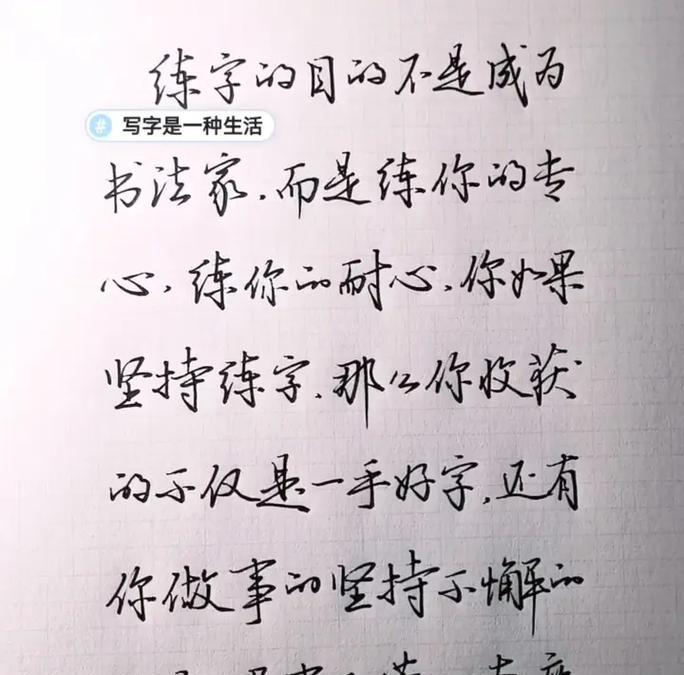 练字的目的不是成为
# 写字是一种生活
书法家.而是练你的专
心,练你的耐心.你如果
坚持练字.那么你收获
的不仅是一手好字,还有
你做事的坚持不懈的